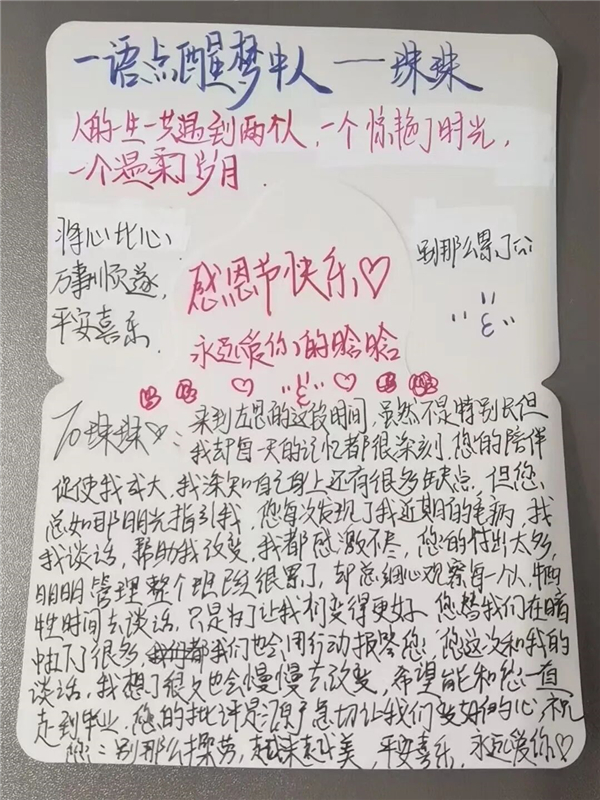 一语点醒梦中人——珠珠
人的一生一共遇到两个人，一个惊艳了时光，
一个温柔了岁月
将心比心
万事顺遂，
平安喜乐
感恩节快乐♡
别那么累了
永远爱你的晗晗
To珠珠♡：
来到左思的这段时间，虽然不是特别长但
我却每一天的记忆都很深刻，您的陪伴
促使我成大，我深知自己身上还有很多缺点，但您
总如那明光指引我，您每次发现了我近期的毛病，找
我谈话，帮助我改变，我都感激不尽，您的付出太多，
明明管理整个班已经很累了，却总细心观察每一个人，牺
牲时间去谈话，只是为了让我们变得更好，您替我们在暗
中扛下了很多，我们也会用行动报答您，您这次和我的
谈话，我想了很久也会慢慢去改变，希望能和您一直
走到毕业，您的批评是急切让我们变好的心，祝
您：别那么操劳，越来越美，平安喜乐，永远爱你♡